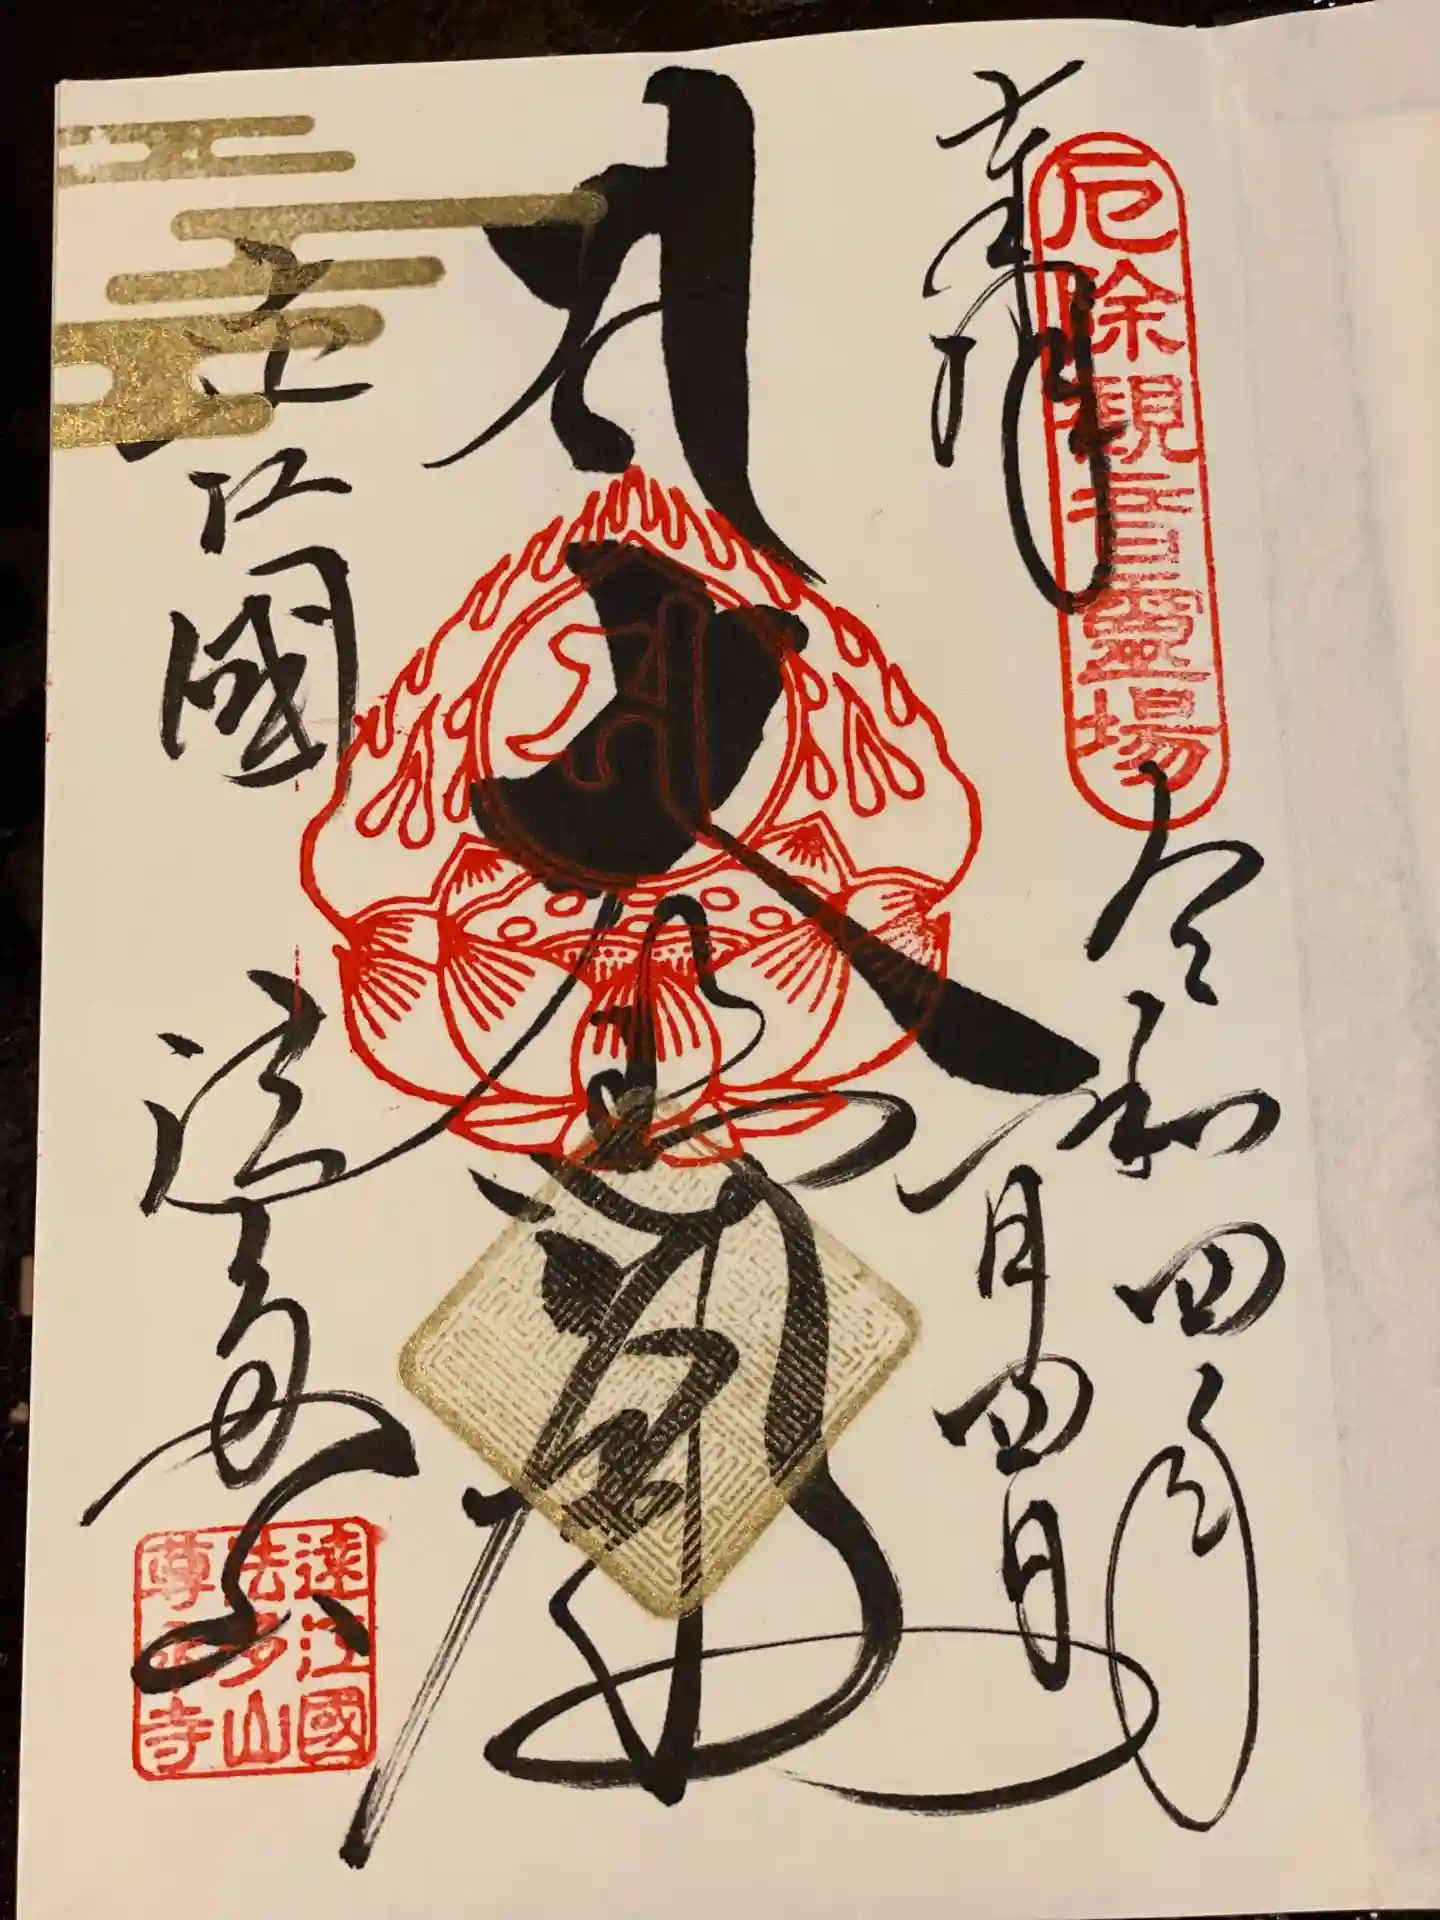 奉拝
厄除観音霊場
令和四年
一月四日
遠江國
法多山
遠江國
法多山
尊永寺